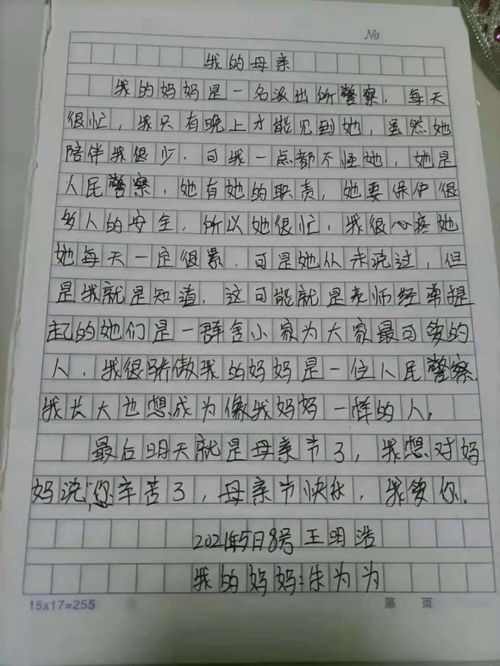 No
我的母亲
我的妈妈是一名派出所警察，每天
很忙，我只有晚上才能见到她，虽然她
陪伴我很少，可我一点都不怪她，她是
人民警察，她有她的职责，她要保护很
多人的安全，所以她很忙，我很心疼她
她每天一定很累，可是她从未说过，但
是我就是知道，这可能就是老师经常提
起的她们是一群舍小家为大家最可爱的
人，我很骄傲我的妈妈是一位人民警察
我长大也想成为像我妈妈一样的人，
最后明天就是母亲节了，我想对妈
妈说“您辛苦了，母亲节快乐，我爱你．
2021年5月8号 王明浩
我的妈妈：朱为为
15×17=255 第 页